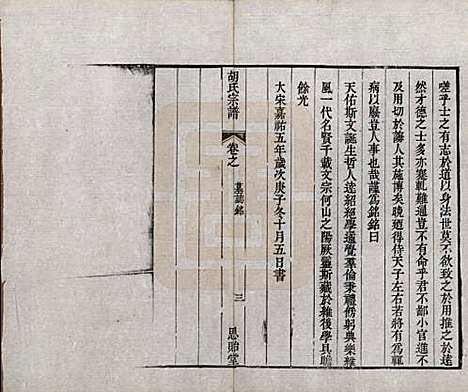 嗟乎士之有志於道以身法世莫不欲致之於用推之於
然才德之士多亦蹇軋難過豈不有命乎君不鄙小官進不
及用切於誨人其施博矣晚遒得侍天子左右若將有爲輒
病以廢豈人事也哉謹爲銘銘曰
天佑斯文誕生哲人逵紹經學通覺羣倫秉禮慱躬典樂雝
風一代名賢千載文宗何山之陽厥靈斯藏於維後學具瞻
餘光
大宋嘉祐五年歲次庚子冬十月五日書
胡氏宗譜
卷之
墓誌銘
三
思貽堂